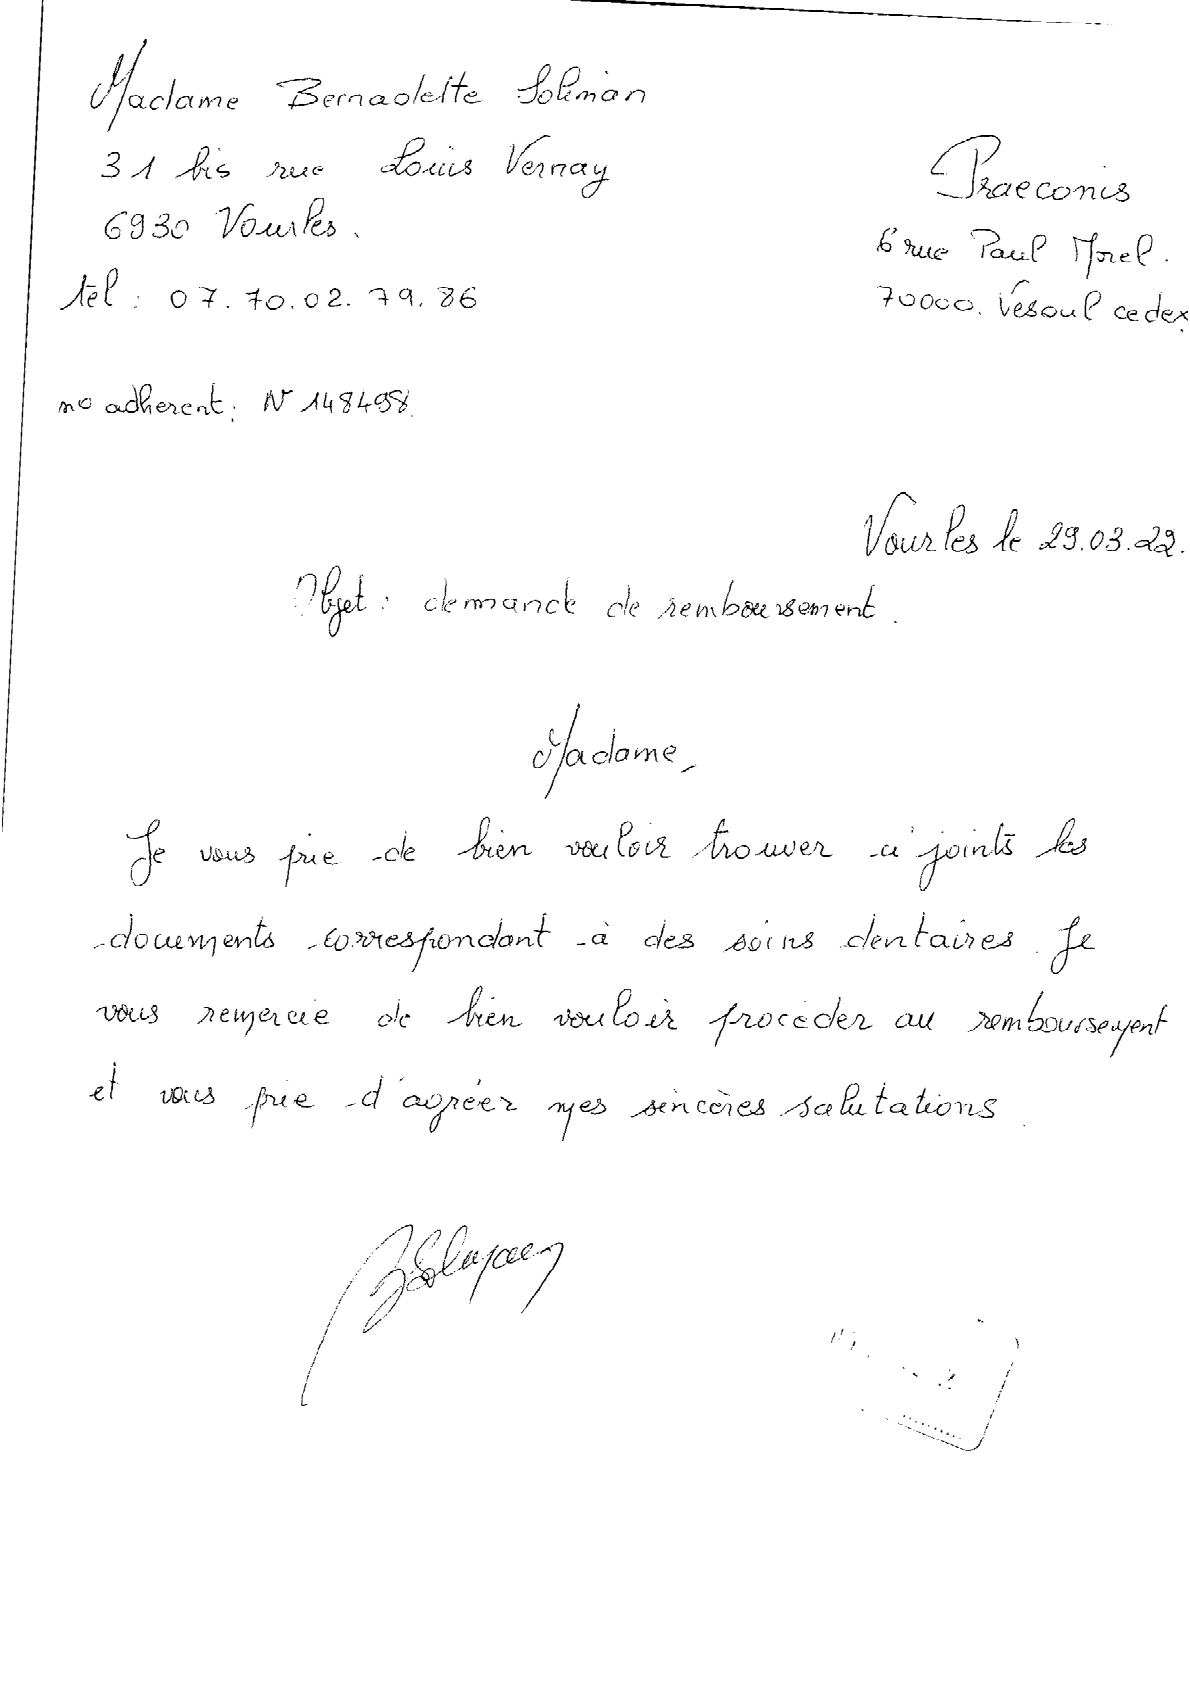 Madame Bernadette Soliman
31 bis rue Louis Vernay
6930 Vourles.
tel : 07.70.02.79.86
no adherent : N 148498
Praeconis
6 rue Paul Morel.
70000. Vesoul cedex
Vourles le 29.03.22.
Objet : demande de remboursement.
Madame,
Je vous prie de bien vouloir trouver ci joints les
documents correspondant à des soins dentaires. Je
vous remercie de bien vouloir procéder au remboursement
et vous prie d'agréer mes sincères salutations.